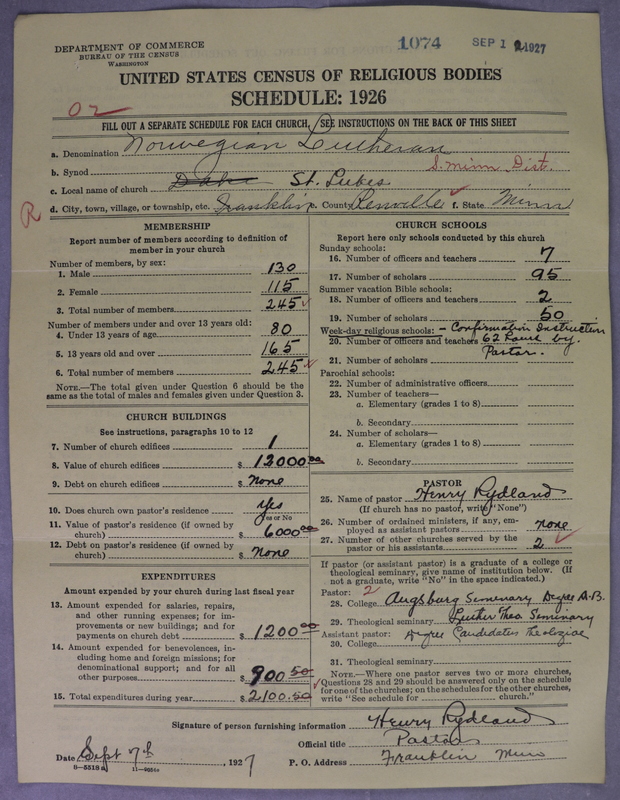 DEPARTMENT OF COMMERCE
BUREAU OF THE CENSUS
WASHINGTON
1074 SEP 1 1927
UNITED STATES CENSUS OF RELIGIOUS BODIES
SCHEDULE: 1926
02
FILL OUT A SEPARATE SCHEDULE FOR EACH CHURCH, SEE INSTRUCTIONS ON THE BACK OF THIS SHEET
a. Denomination Norwegian Lutheran
b. Synod S. Minn. Dist.
c. Local name of church St. Lukes
d. City, town, village, or township, etc. Franklin e. County Renville f. State Minn
R
MEMBERSHIP
Report number of members according to definition of
member in your church
Number of members, by sex:
1. Male 130
2. Female 115
3. Total number of members 245
Number of members under and over 13 years old:
4. Under 13 years of age 80
5. 13 years old and over 165
6. Total number of members 245
NOTE.—The total given under Question 6 should be the
same as the total of males and females given under Question 3.
CHURCH BUILDINGS
See instructions, paragraphs 10 to 12
7. Number of church edifices 1
8. Value of church edifices $ 12000 00
9. Debt on church edifices $ none
10. Does church own pastor's residence? yes
Yes or No
11. Value of pastor's residence (if owned by
church) $ 6000 00
12. Debt on pastor's residence (if owned by
church) $ none
EXPENDITURES
Amount expended by your church during last fiscal year
13. Amount expended for salaries, repairs,
and other running expenses; for im-
provements or new buildings; and for
payments on church debt $ 1200 00
14. Amount expended for benevolences, in-
cluding home and foreign missions; for
denominational support; and for all
other purposes $ 900 50
15. Total expenditures during year $ 2100.50
CHURCH SCHOOLS
Report here only schools conducted by this church
Sunday schools:
16. Number of officers and teachers 7
17. Number of scholars 95
Summer vacation Bible schools:
18. Number of officers and teachers 2
19. Number of scholars 50
Week-day religious schools: - Confirmation Instruction
20. Number of officers and teachers 62 hours by.
21. Number of scholars Pastor.
Parochial schools:
22. Number of administrative officers
23. Number of teachers—
a. Elementary (grades 1 to 8)
b. Secondary
24. Number of scholars—
a. Elementary (grades 1 to 8)
b. Secondary
PASTOR
25. Name of pastor Henry Rydland
(If church has no pastor, write "None")
26. Number of ordained ministers, if any, em-
ployed as assistant pastors none
27. Number of other churches served by the
pastor or his assistants 2
If pastor (or assistant pastor) is a graduate of a college or
theological seminary, give name of institution below. (If
not a graduate, write "No" in the space indicated.)
Pastor: 2
28. College Augsburg Seminary Degree A.B.
29. Theological seminary Luther Theo Seminary
Assistant pastor: Degree Candidatus Theologiae
30. College
31. Theological seminary
NOTE.—Where one pastor serves two or more churches,
Questions 28 and 29 should be answered only on the schedule
for one of the churches; on the schedules for the other churches,
write "See schedule for church."
Signature of person furnishing information Henry Rydland
Official title Pastor
Date Sept 7th, 1927 P. O. Address Franklin Minn
8—5518 a 11—9054